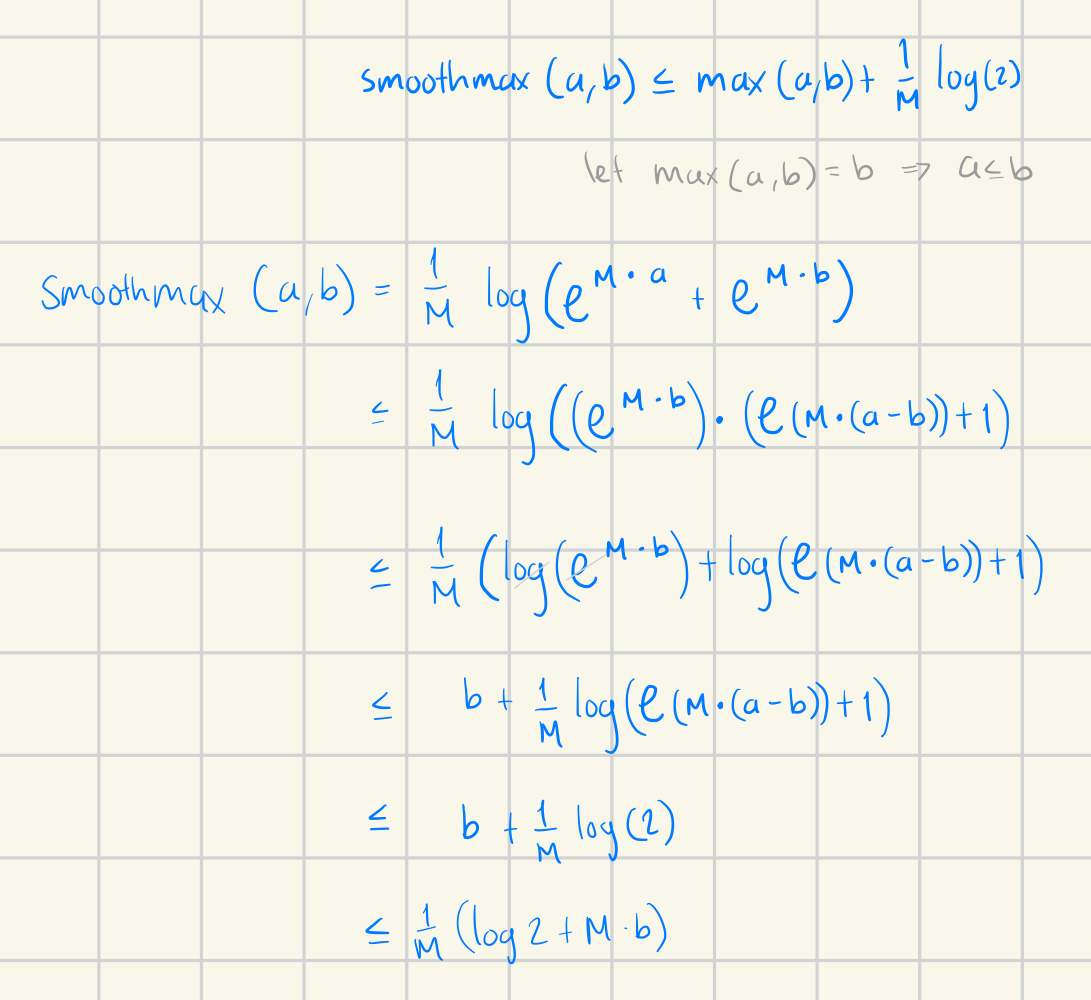 smoothmax (a,b) ≤ max (a,b) + 1/M log(2)
let max(a,b) = b ⇒ a ≤ b
Smoothmax (a,b) = 1/M log(e^(M·a) + e^(M·b))
≤ 1/M log((e^(M·b)) · (e(M·(a-b))+1)
≤ 1/M (log(e^(M·b)) + log(e(M·(a-b))+1)
≤ b + 1/M log(e(M·(a-b))+1)
≤ b + 1/M log(2)
≤ 1/M (log 2 + M·b)